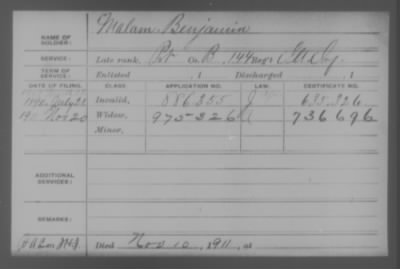 Malam Benjamin
NAME OF SOLDIER:
SERVICE: Late rank, Pvt Co. B, 144 Reg't Ill Inf
TERM OF SERVICE: Enlisted , 1 Discharged , 1
DATE OF FILING. CLASS. APPLICATION NO. LAW. CERTIFICATE NO.
July 22 Invalid, 886355 635.326
1911 Nov 20 Widow, 975326 736696
Minor,
ADDITIONAL SERVICES:
REMARKS:
Died Nov 10, 1911, at